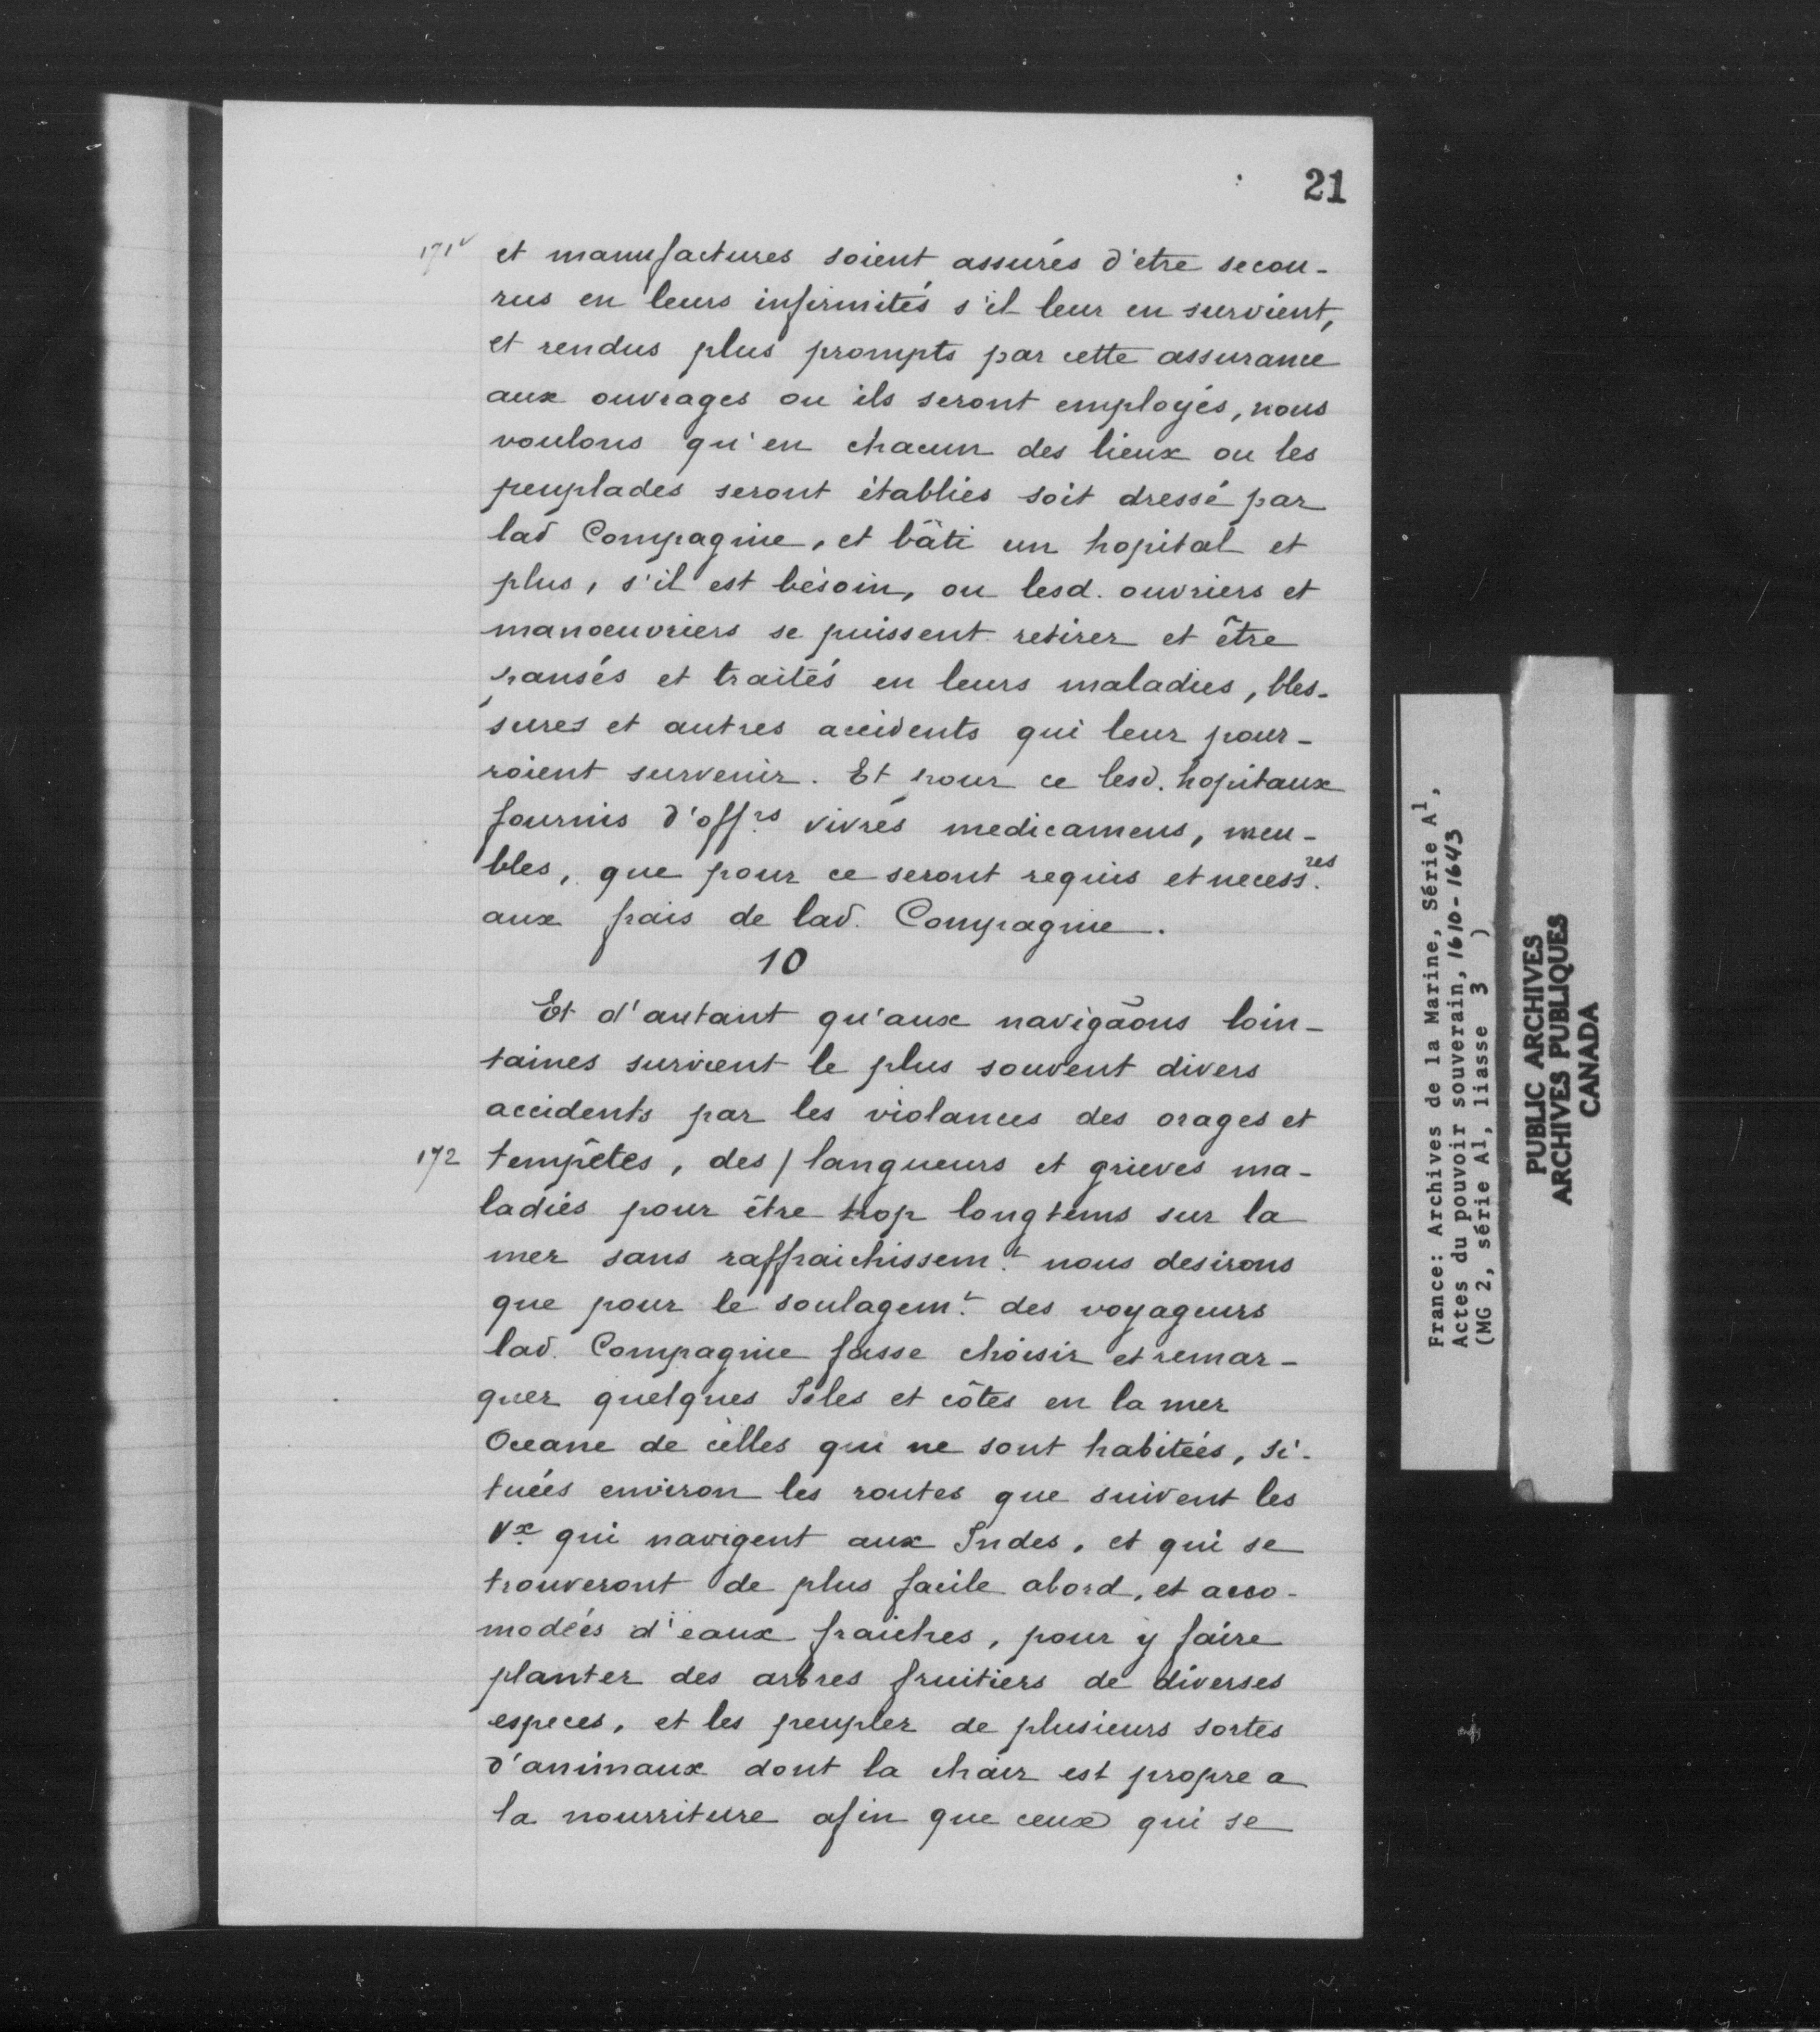 21
171v et manufactures soient assurés d'etre secou-
rus en leurs infirmités s'il leur en survient,
et rendus plus prompts par cette assurance
aux ouvrages ou ils seront employés, nous
voulons qu'en chacun des lieux ou les
peuplades seront établies soit dressé par
lad Compagnie, et bâti un hopital et
plus, s'il est bésoin, ou lesd. ouvriers et
manoeuvriers se puissent retirer et être
pansés et traités en leurs maladies, bles-
sures et autres accidents qui leur pour-
roient survenir. Et pour ce lesd. hopitaux
fournis d'offrs vivrés medicamens, meu-
bles, que pour ce seront requis et necess.res
aux frais de lad. Compagnie.
10
Et d'autant qu'aux navigaõns loin-
taines survient le plus souvent divers
accidents par les violances des orages et
172 tempêtes, des / langueurs et grieves ma-
ladiés pour être trop longtems sur la
mer sans raffraichissem.t nous desirons
que pour le soulagem.t des voyageurs
lad. Compagnie fasse choisir et remar-
quer quelques Isles et côtes en la mer
Oceane de celles qui ne sont habitées, si-
tuées environ les routes que suivent les
V.x qui navigent aux Indes, et qui se
trouveront de plus facile abord, et acco-
modées d'eaux fraiches, pour y faire
planter des arbres fruitiers de diverses
especes, et les peupler de plusieurs sortes
d'animaux dont la chair est propre a
la nourriture afin que ceux qui se
France: Archives de la Marine, Série A1,
Actes du pouvoir souverain, 1610-1643
(MG 2, série A1, liasse 3 )
PUBLIC ARCHIVES
ARCHIVES PUBLIQUES
CANADA